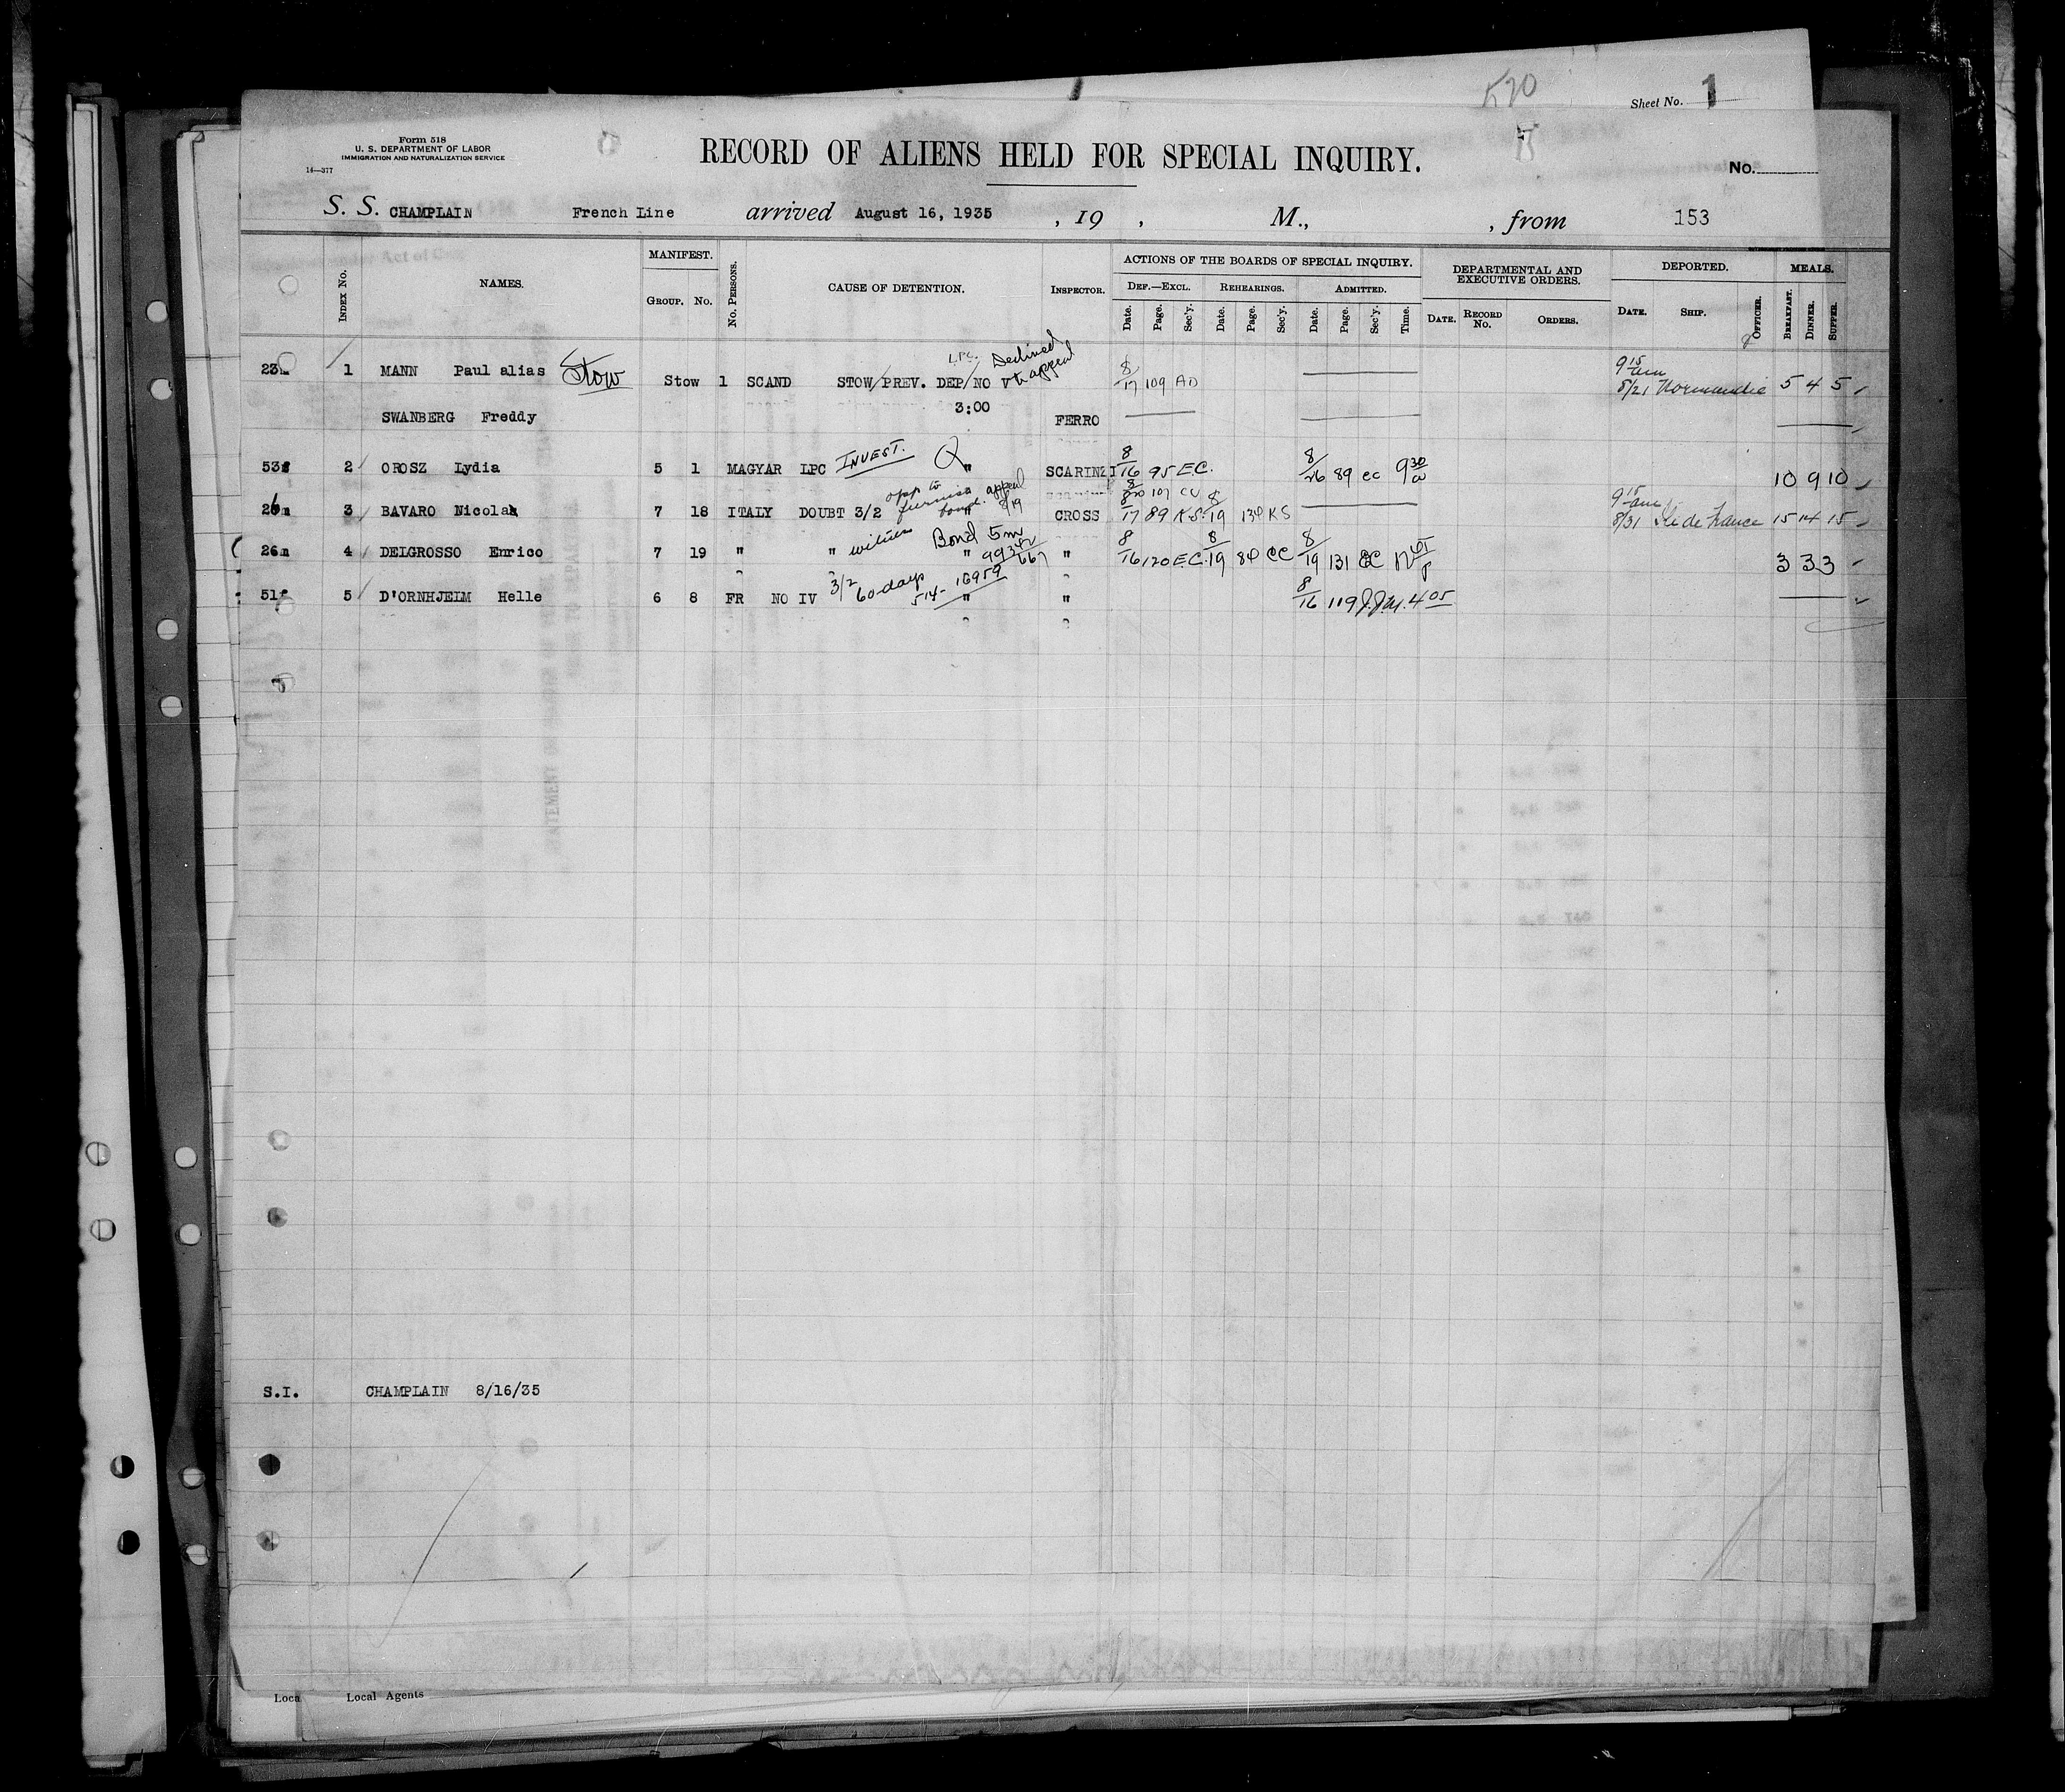 Sheet No. 1
Form 518
U. S. DEPARTMENT OF LABOR
IMMIGRATION AND NATURALIZATION SERVICE
14—377
RECORD OF ALIENS HELD FOR SPECIAL INQUIRY.
No.
S. S. CHAMPLAIN French Line arrived August 16, 1935 , 19 , M., , from 153
INDEX No. NAMES. MANIFEST. GROUP. No. No. PERSONS. CAUSE OF DETENTION. INSPECTOR. ACTIONS OF THE BOARDS OF SPECIAL INQUIRY. DEF.—EXCL. Date. Page. Sec'y. REHEARINGS. Date. Page. Sec'y. ADMITTED. Date. Page. Sec'y. Time. DEPARTMENTAL AND EXECUTIVE ORDERS. DATE. RECORD No. ORDERS. DEPORTED. DATE. SHIP. OFFICER. MEALS. BREAKFAST. DINNER. SUPPER.
LPC. Declined appeal 9 15 am
23m 1 MANN Paul alias Stow Stow 1 SCAND STOW/PREV. DEP/NO V 8/17 109 AD 8/21 Normandie 5 4 5
SWANBERG Freddy 3:00 FERRO
53f 2 OROSZ Lydia 5 1 MAGYAR LPC INVEST. Q " SCARINZI 8/16 95 E.C. 8/26 89 CC 9 30 a 10 9 10
opp to furnish bond. appeal 8/19 8/20 107 CC 9 15 am
26m 3 BAVARO Nicola 7 18 ITALY DOUBT 3/2 " CROSS 8/17 89 K.S. 8/19 134 KS 8/31 Ile de France 15 14 15
witness Bond 5m 99342
26m 4 DELGROSSO Enrico 7 19 " " " 667 " 8/16 120 E.C. 8/19 84 CC 8/19 131 EC 3 3 3
3/2 60 days 514- 16959
51f 5 D'ORNHJEIM Helle 6 8 FR NO IV " " 8/16 119 J.J.M. 4 05
S.I. CHAMPLAIN 8/16/35
Loca Local Agents